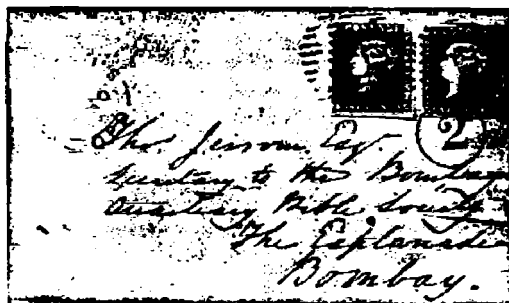 2
Tho. Jerrom Esq.
Secretary to the Bombay
Auxiliary Bible Society
The Esplanade
Bombay.